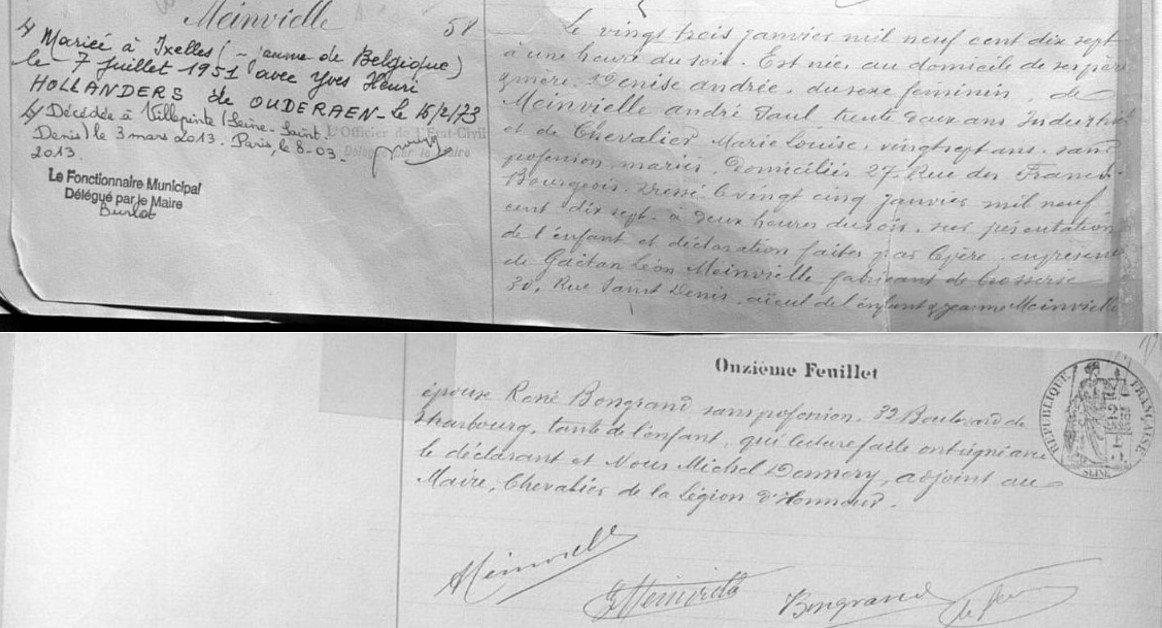 Meinvielle
58
4) Mariée à Ixelles (- jaume de Belgique)
le 7 juillet 1951 avec Yves Henri
HOLLANDERS de OUDERAEN - le 16/2/73
4) Décédée à Villepinte (Seine-Saint
Denis) le 3 mars 2013. Paris, le 8-03-
2013.
L'Officier de l'Etat-Civil
Délégué par le Maire
Le Fonctionnaire Municipal
Délégué par le Maire
Burlot
Le vingt trois janvier mil neuf cent dix sept
à une heure du soir. Est née, au domicile de ses père
& mère. Denise andrée, du sexe feminin, de
Meinvielle andré Paul trente deux ans Industriel
et de Chevalier Marie Louise, vingt sept ans, sans
profession, mariés, Domiciliés 27 Rue des Francs-
Bourgeois. Dressé le vingt cinq janvier mil neuf
cent dix sept, à deux heures du soir, sur présentation
de l'enfant et déclaration faites par le père, en présence
de Gaëtan Léon Meinvielle fabricant de brosserie
30, Rue Saint Denis, aïeul de l'enfant & jeanne Meinvielle
Onzième Feuillet
épouse René Bongrand sans profession, 39 Boulevard de
Strasbourg, tante de l'enfant, qui lecture faite ont signé avec
le déclarant et Nous Michel Dennery, adjoint au
Maire, Chevalier de la Légion d'Honneur.
RÉPUBLIQUE FRANÇAISE
SEINE
Meinvielle
G Meinvielle
Bongrand